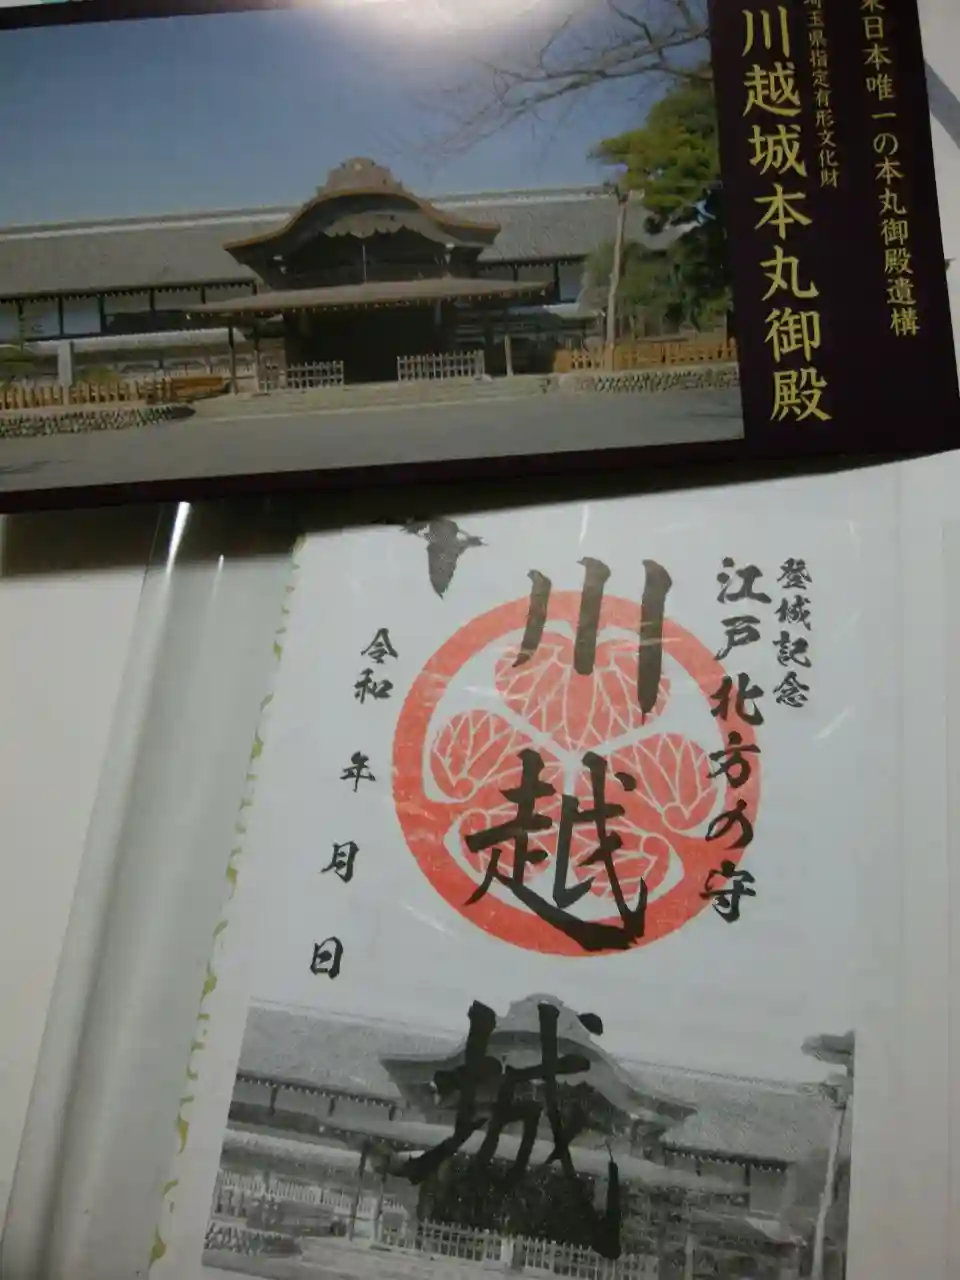 東日本唯一の本丸御殿遺構
埼玉県指定有形文化財
川越城本丸御殿
登城記念
江戸北方の守
川越城
令和 年 月 日